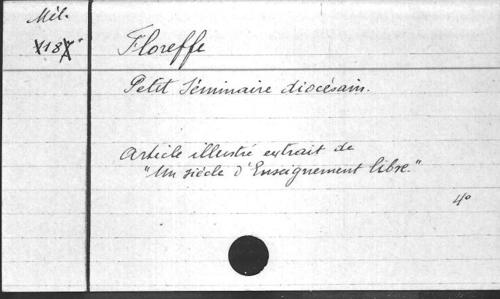 Mél.
Floreffe
Petit Séminaire diocésain.
Article illustré extrait de
"Un siècle d'Enseignement libre."
4°